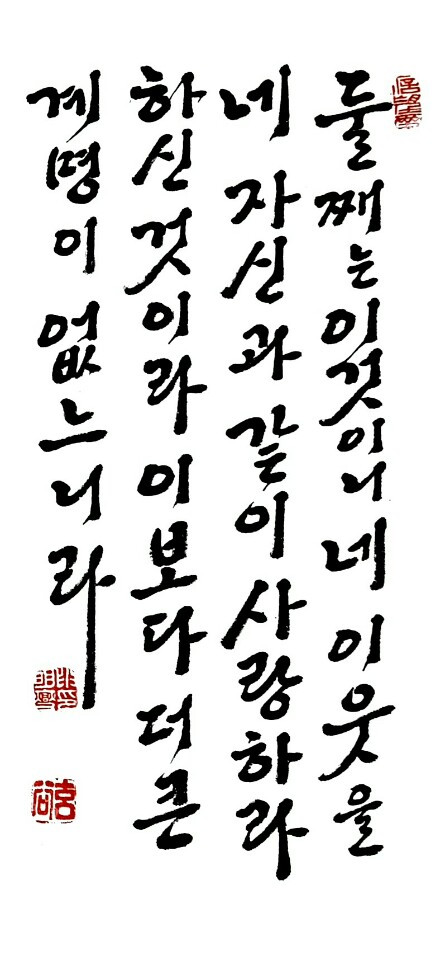 둘째는 이것이니 네 이웃을
네 자신과 같이 사랑하라
하신 것이라 이보다 더 큰
계명이 없느니라